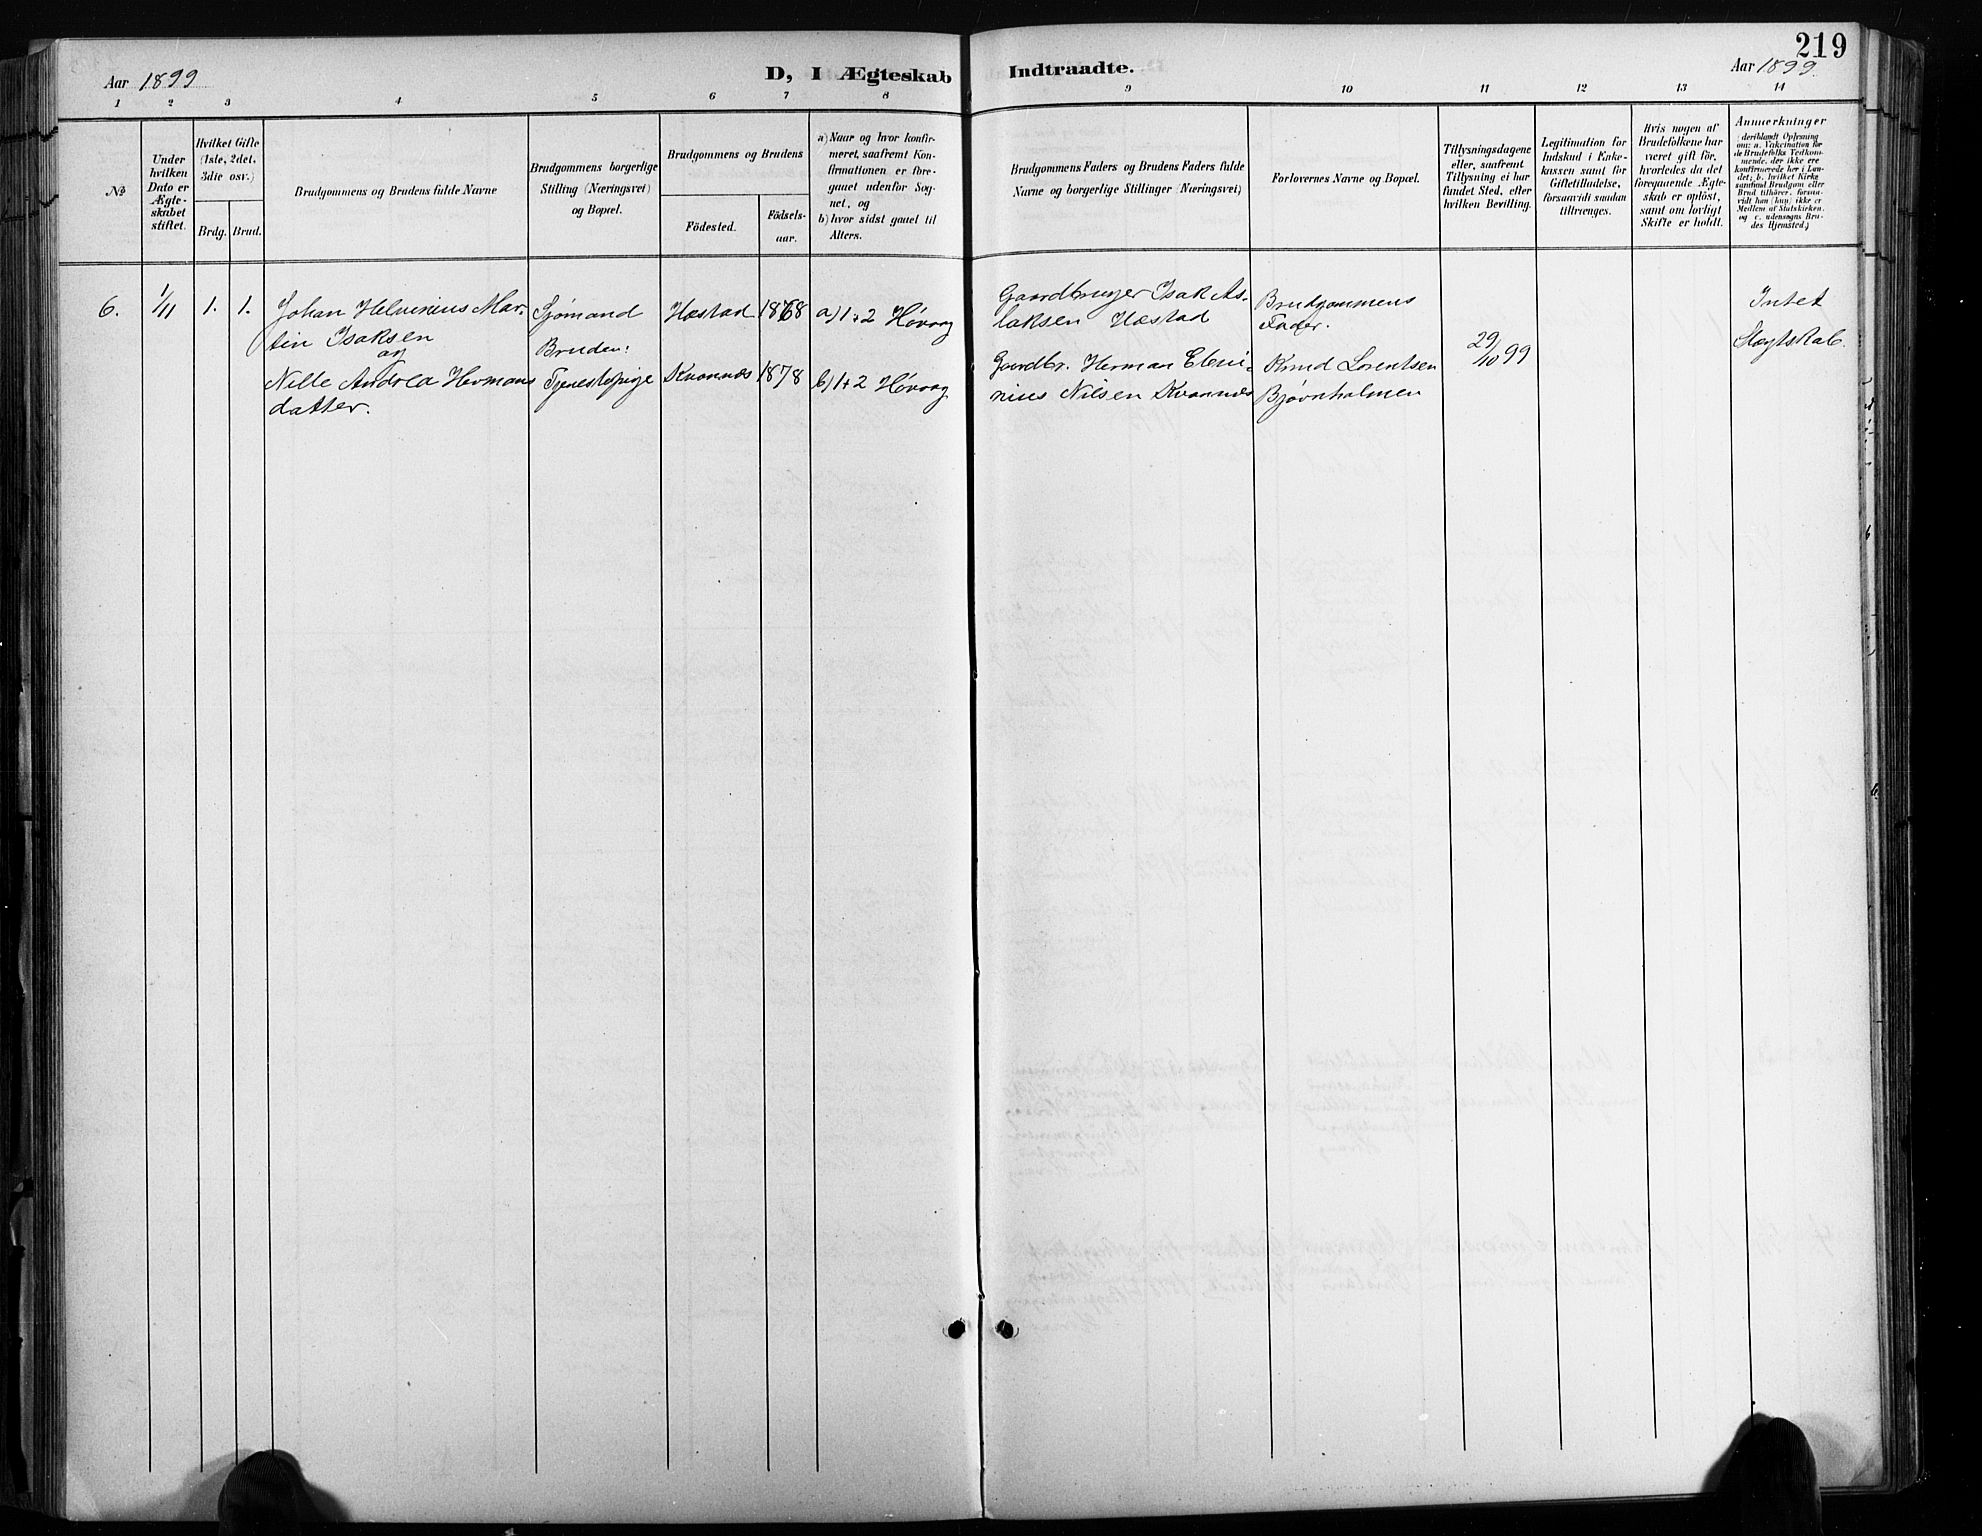 219
Aar 1899
D, I Ægteskab Indtraadte.
Aar 1899.
1 2 3 4 5 6 7 8 9 10 11 12 13 14
No
Under
hvilken
Dato er
Ægte-
skabet
stiftet.
Hvilket Gifte
(1ste, 2det,
3die osv.)
Brdg. Brud.
Brudgommens og Brudens fulde Navne
Brudgommens borgerlige
Stilling (Næringsvei)
og Bopæl.
Brudgommens og Brudens
Födested.
Födsels-
aar.
a) Naar og hvor konfir-
meret, saafremt Kon-
firmationen er fore-
gaaet udenfor Sog-
net, og
b) hvor sidst gaaet til
Alters.
Brudgommens Faders og Brudens Faders fulde
Navne og borgerlige Stillinger (Næringsvei)
Forlovernes Navne og Bopæl.
Tillysningsdagene
eller, saafremt
Tillysning ei har
fundet Sted, efter
hvilken Bevilling.
Legitimation for
Indskud i Enke-
kassen samt for
Giftetilladelse,
forsaavidt saadan
tiltrænges.
Hvis nogen af
Brudefolkene har
været gift för,
hvorledes da det
foregaaende Ægte-
skab er oplöst,
samt om lovligt
Skifte er holdt.
Anmærkninger
(deriblandt Oplysning
om: a. Vakcination for
de Brudefolks Vedkom-
mende, der ikke ere
konfirmerede her i Lan-
det; b. hvilket Kirke-
samfund Brudgom eller
Brud tilhörer, forsaa-
vidt han (hun) ikke er
Medlem af Statskirken,
og c. udensogns Bru-
des Hjemsted.)
6. 1/11 1. 1.
Johan Helvinius Mar-
tin Isaksen
og
Nille Andrea Hermans
datter.
Sjømand
Bruden:
Tjenestepige
Hæstad 1868
Kvannes 1878
a) 1+2 Høvaag
b) 1+2 Høvaag
Gaardbruger Isak As-
laksen Hæstad
Gaardbr. Herman Eleni-
nius Nilsen Kvannes
Brudgommens
Fader.
Knud Lorentsen
Bjørnholmen
29/10 99
Intet
Slægtskab.